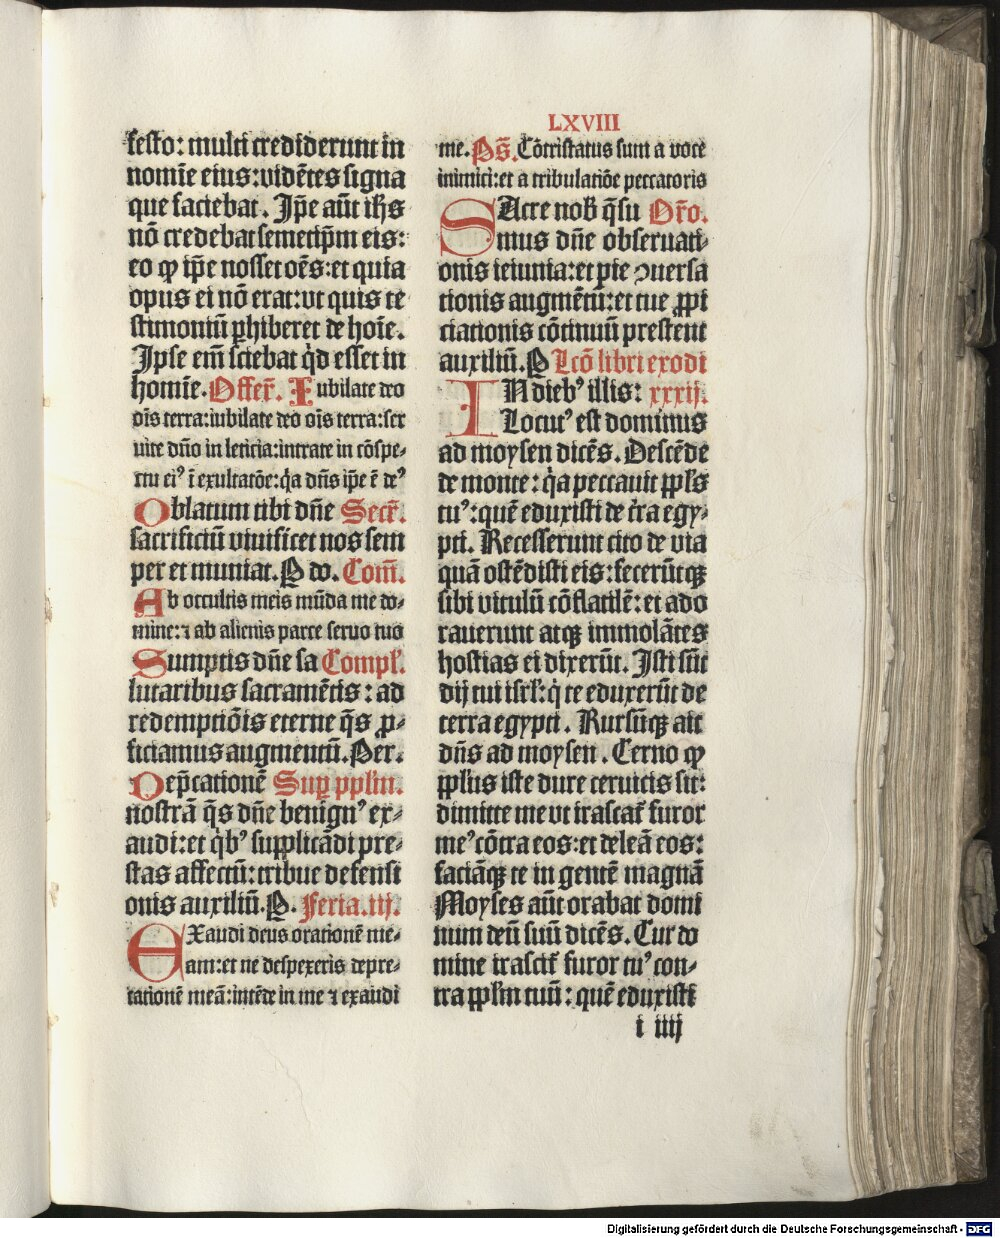 LXVIII
festo: multi crediderunt in
nomīe eius: vidētes signa
que faciebat. Ip̄e aūt ih̄s
nō credebat semetip̄m eis:
eo ꝙ ip̄e nosset oēs: et quia
opus ei nō erat: vt quis te
stimoniū ꝑhiberet de hoīe.
Ipse em̄ sciebat qͥd esset in
homīe. Offer̄. Iubilate deo
oīs terra: iubilate deo oīs terra: ser
uite dn̄o in leticia: intrate in cōspe-
ctu eiꝰ ī exultatōe: qͥa dn̄s ip̄e ē deꝰ
Oblatum tibi dn̄e Secr̄.
sacrificiū viuificet nos sem
per et muniat. P do. Com̄.
Ab occultis meis mūda me do-
mine: ⁊ ab alienis parce seruo tuo
Sumptis dn̄e sa Compl̄.
lutaribus sacramētis: ad
redemptiōis eterne q̄s ꝓ-
ficiamus augmentū. Per.
Dep̄cationē Suꝑ pplm̄.
nostrā q̄s dn̄e benignꝰ ex-
audi: et qͥbꝰ supplicādi pre-
stas affectū: tribue defensi
onis auxiliū. P. Feria. iij.
EXaudi deus orationē me-
am: et ne despexeris depre-
cationē meā: intēde in me ⁊ exaudi
me. Ps̄. Cōtristatus sum a voce
inimici: et a tribulatiōe peccatoris
SAcre nob̄ q̄su Or̄o.
mus dn̄e obseruati-
onis ieiunia: et pie ꝯuersa
tionis augmētū: et tue ꝓpi
ciationis cōtinuū prestent
auxiliū. P Lcō libri exodi
IN diebꝰ illis: xxxij.
Locutꝰ est dominus
ad moysen dicēs. Descēde
de monte: qͥa peccauit ppl̄s
tuꝰ: quē eduxisti de t̄ra egy-
pti. Recesserunt cito de via
quā ostēdisti eis: fecerūtqꝫ
sibi vitulū cōflatilē: et ado
rauerunt atqꝫ immolātes
hostias ei dixerūt. Isti sūt
dij tui isrl̄: qͥ te eduxerūt de
terra egypti. Rursūqꝫ ait
dn̄s ad moysen. Cerno ꝙ
ppl̄us iste dure ceruicis sit:
dimitte me vt irascat̄ furor
meꝰ cōtra eos: et deleā eos:
faciāqꝫ te in gentē magnā
Moyses aūt orabat domi
num deū suū dicēs. Cur do
mine irascit̄ furor tuꝰ con-
tra pplm̄ tuū: quē eduxisti
i iiij
Digitalisierung gefördert durch die Deutsche Forschungsgemeinschaft - DFG